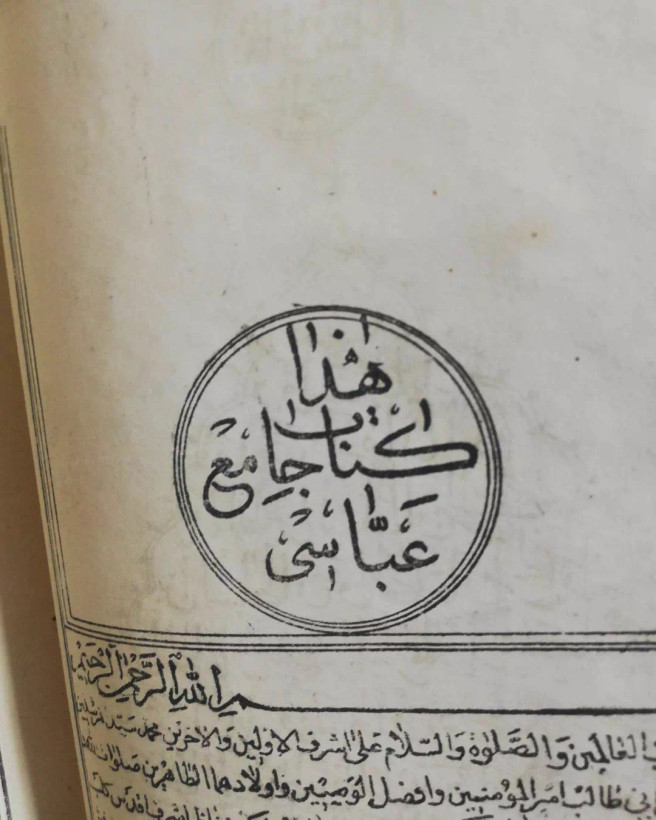 هٰذا
كتاب جامع
عبّاسى
بسم الله الرحمن الرحيم
العالمين والصلوة والسّلام على اشرف الاولين والاخرين محمد سيد
ابى طالب امير المؤمنين وافضل الوصيين واولادهما الطاهرين صلوات